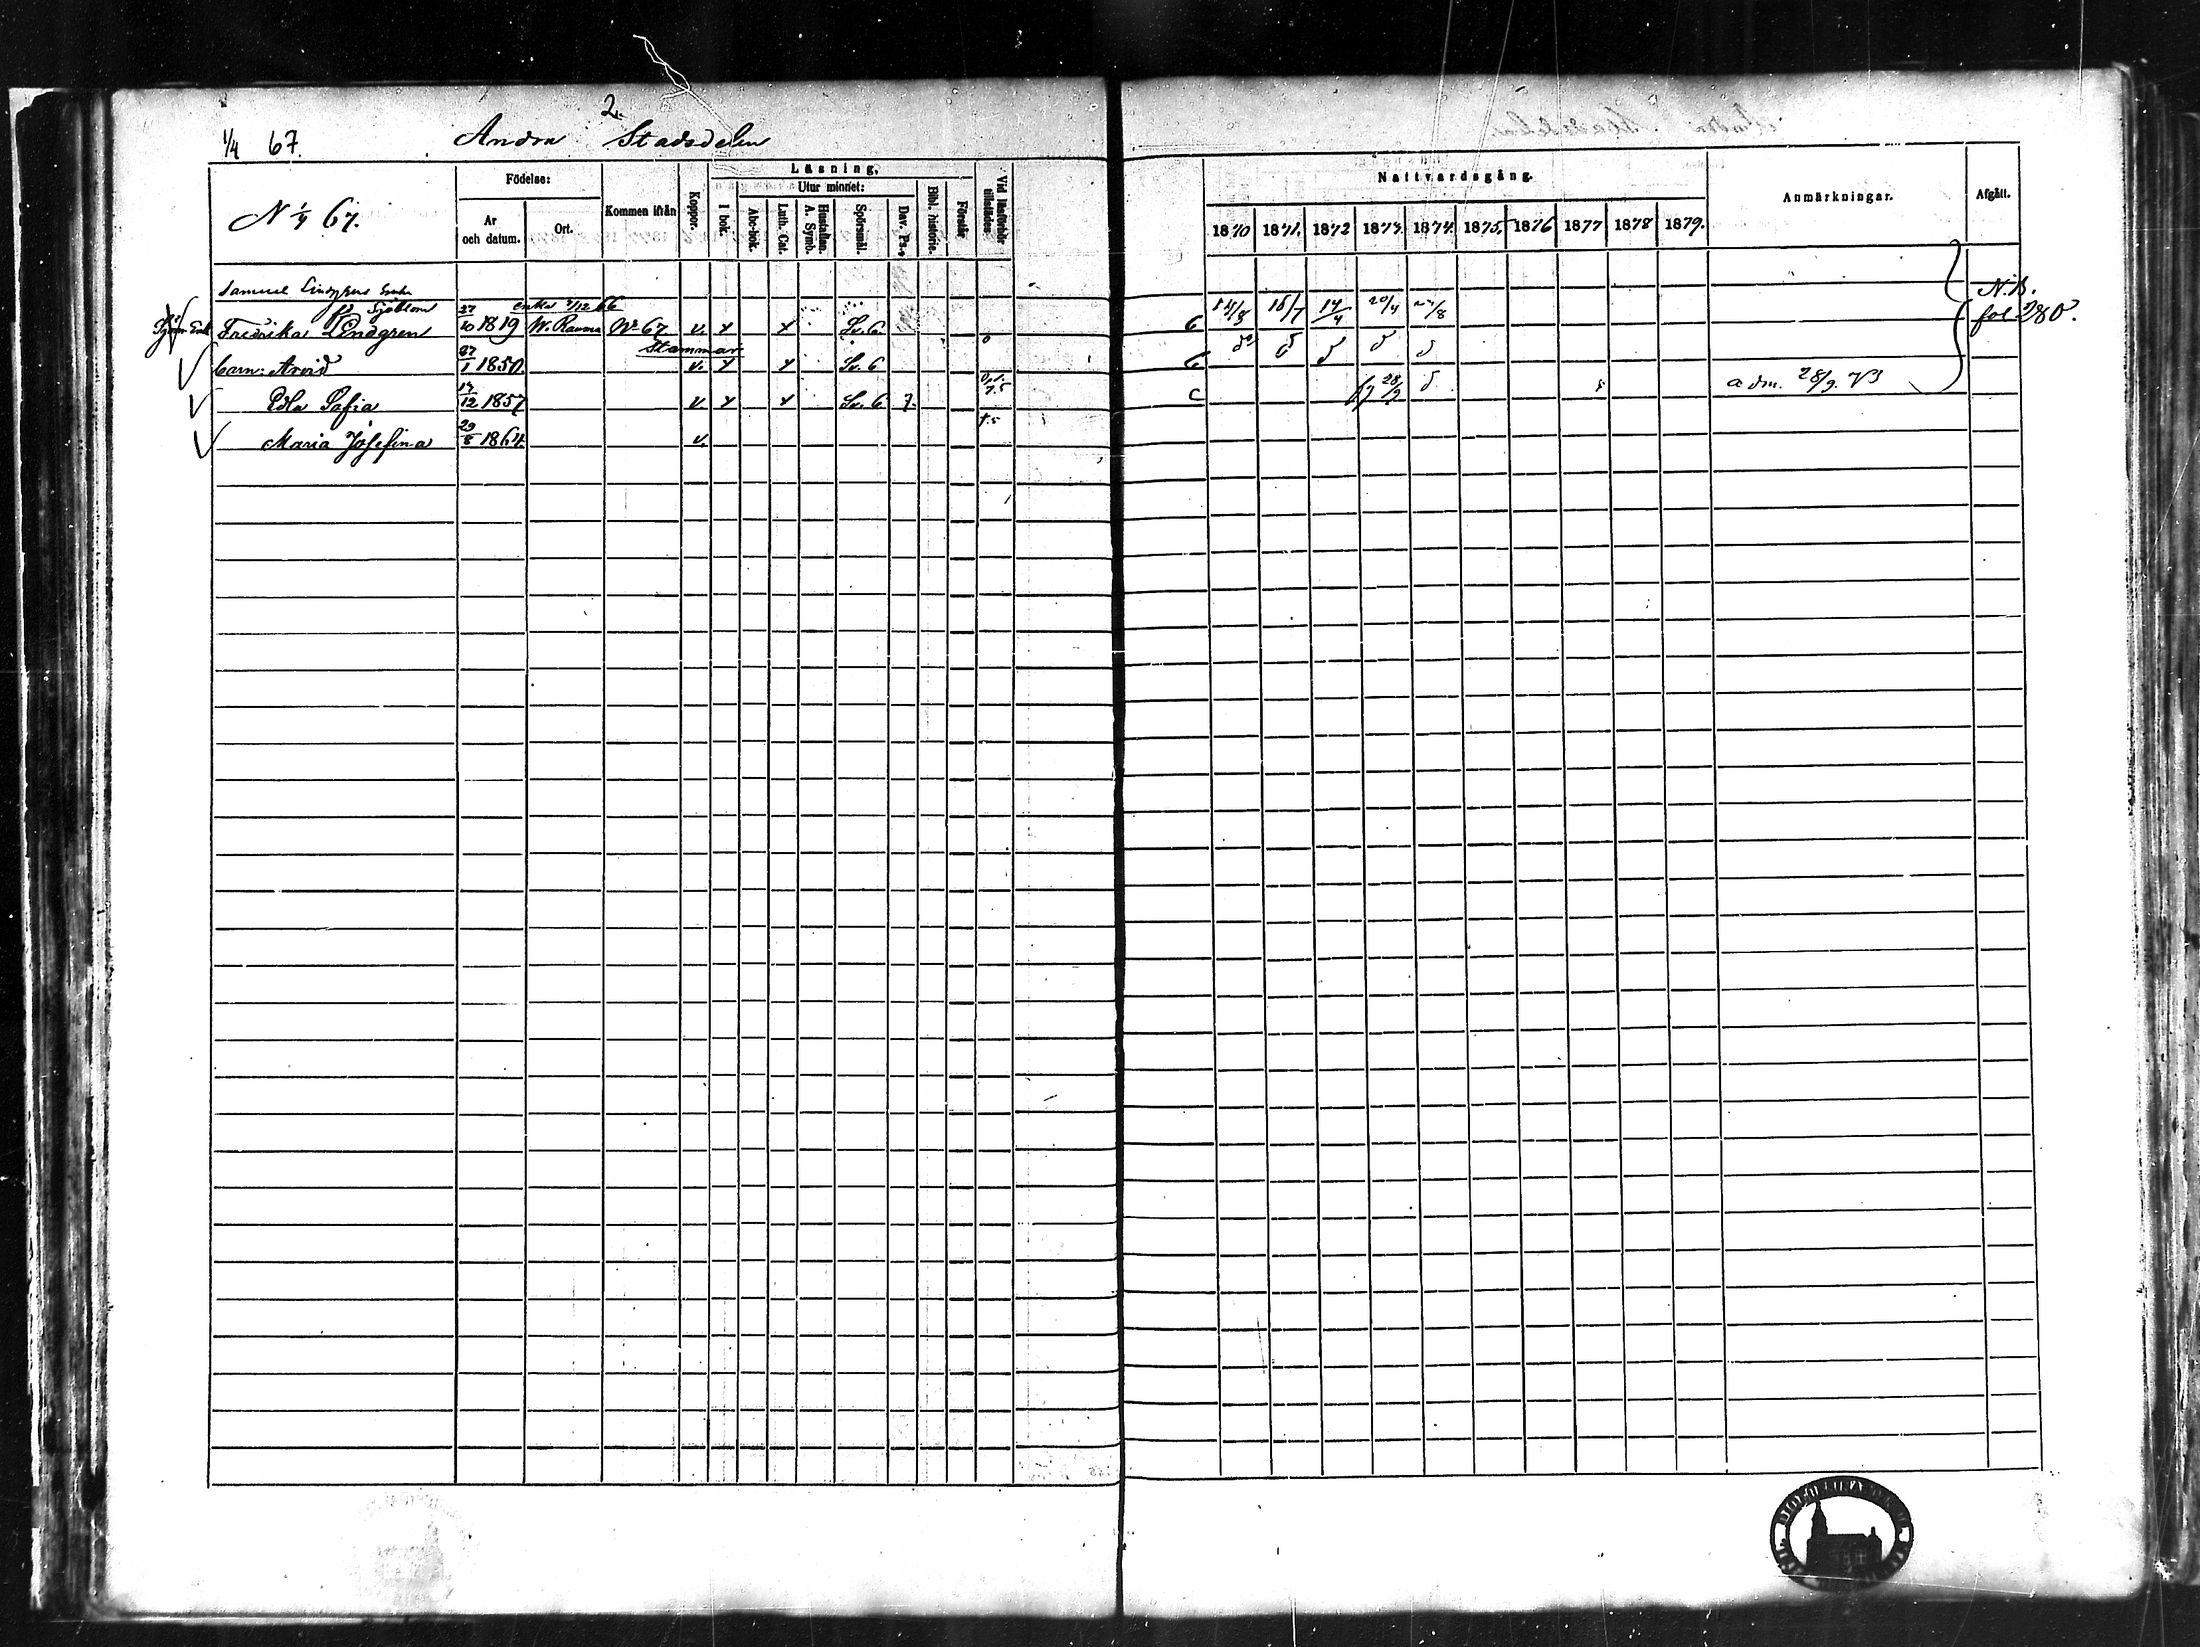 2.
1/4 67.
Andra Stadsdelen
N 1/4 67.
Födelse:
År och datum.
Ort.
Kommen ifrån
Koppor.
Läsning,
I bok.
Utur minnet:
Abc-bok.
Luth. Cat.
Hustaflan. A. Symb.
Spörsmål.
Dav. Ps.
Bibl. historie.
Förstår
Vid läsförhör tillstädes
Nattvardsgång.
1870 1871. 1872 1873. 1874. 1875. 1876 1877 1878 1879.
Anmärkningar.
Afgått.
Samuel Lindgrens Enka
N.B.
Sjöblom enka 2/12 66
Fredrika Lindgren 27/10 1819 W. Rauma No 67 v. x x Sv. 6 6 15/7 14/4 20/4 fol 280.
Stammar
barn: Arvid 27/1 1850. v. x x Sv. 6 6
Edla Sofia 17/12 1857 v. x x Sv. 6 7. C 28/9 adm. 28/9. 73
Maria Josefina 29/8 1864 v.